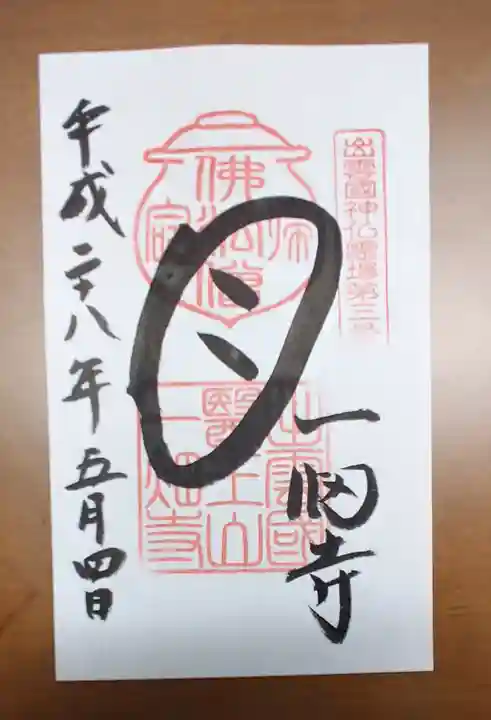 出雲國神仏霊場第三番
佛法僧
目
出雲國
醫王山
一畑寺
一畑寺
平成二十八年五月四日